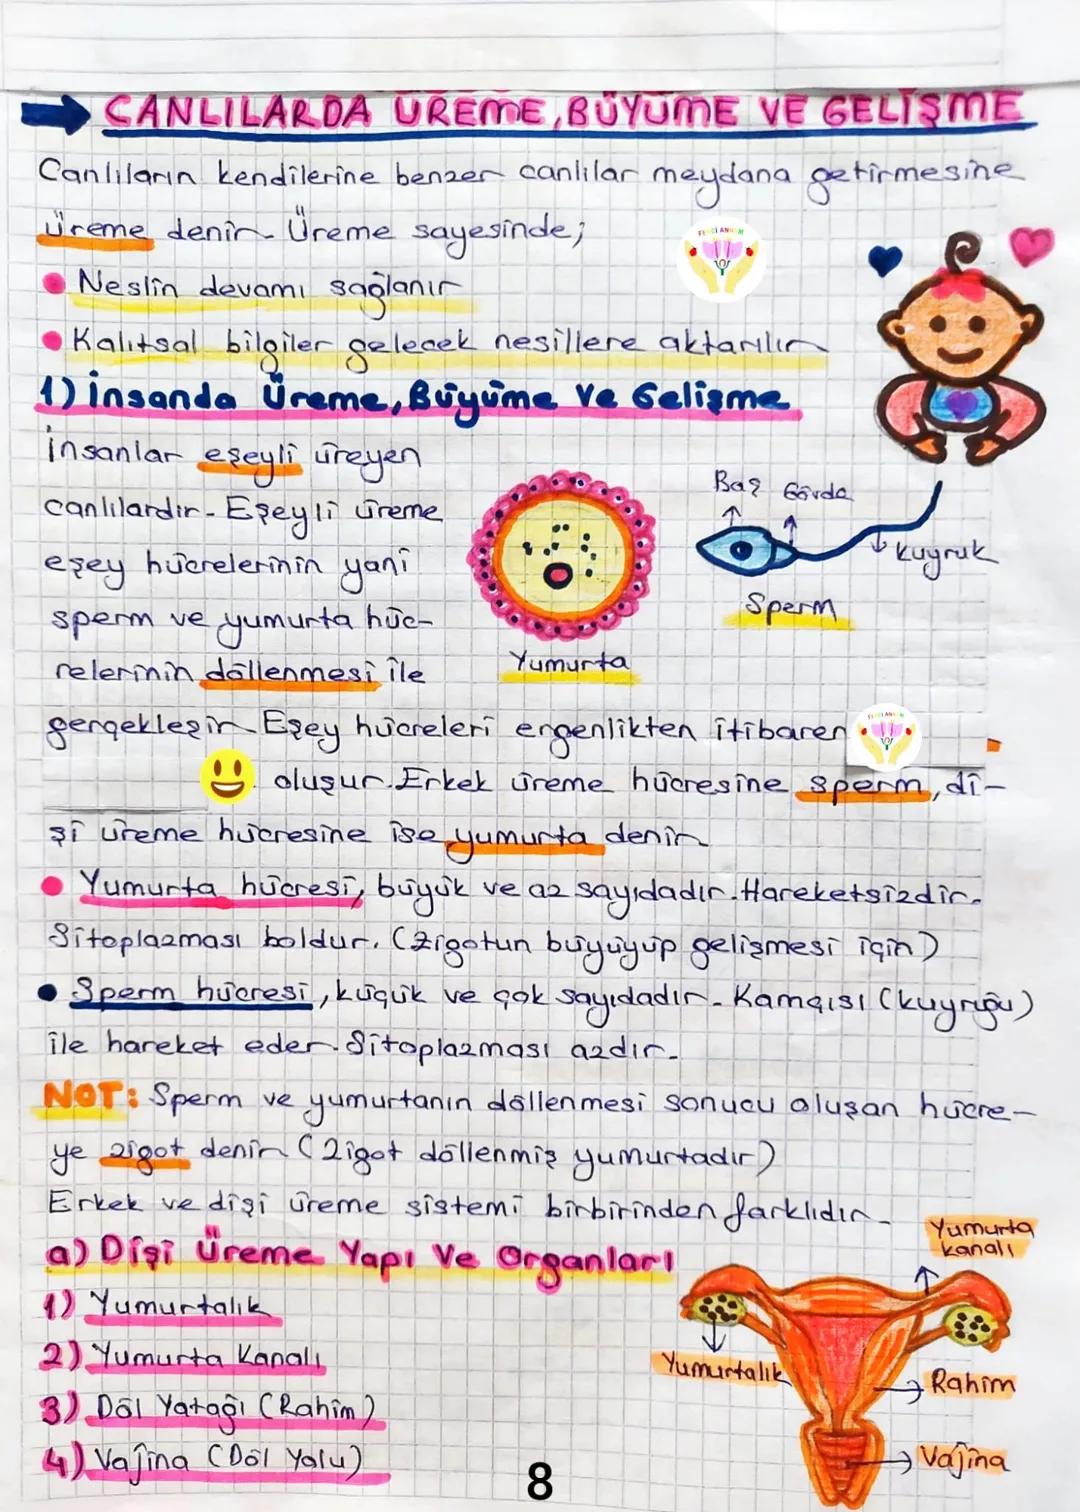 CANLILARDA ÜREME, BÜYÜME VE GELİŞME
Canlıların kendilerine benzer canlılar meydana getirmesine
üreme denir. Üreme sayesinde;
Neslin devamı sağlanır
Kalıtsal bilgiler gelecek nesillere aktarılır
1) İnsanda Üreme, Büyüme Ve Gelişme
İnsanlar eşeyli üreyen
canlılardır. Eşeyli üreme
eşey hücrelerinin yani
sperm ve yumurta hüc-
relerinin döllenmesi ile
Yumurta
Baş Gövde
kuyruk
Sperm
gerçekleşir. Eşey hücreleri ergenlikten itibaren
oluşur. Erkek üreme hücresine sperm, di-
şi üreme hücresine ise yumurta denir.
Yumurta hücresi, büyük ve az sayıdadır. Hareketsizdir.
Sitoplazması boldur. (Zigotun büyüyüp gelişmesi için)
Sperm hücresi, küçük ve çok sayıdadır. Kamçısı (kuyruğu)
ile hareket eder. Sitoplazması azdır.
NOT: Sperm ve yumurtanın döllenmesi sonucu oluşan hücre-
ye zigot denir (Zigot döllenmiş yumurtadır)
Erkek ve dişi üreme sistemi birbirinden farklıdır.
a) Dişi Üreme Yapı Ve Organları
1) Yumurtalık
2) Yumurta Kanalı
3) Döl Yatağı (Rahim)
4) Vajina (Döl Yolu)
Yumurta
kanalı
Yumurtalık
Rahim
Vajina
8